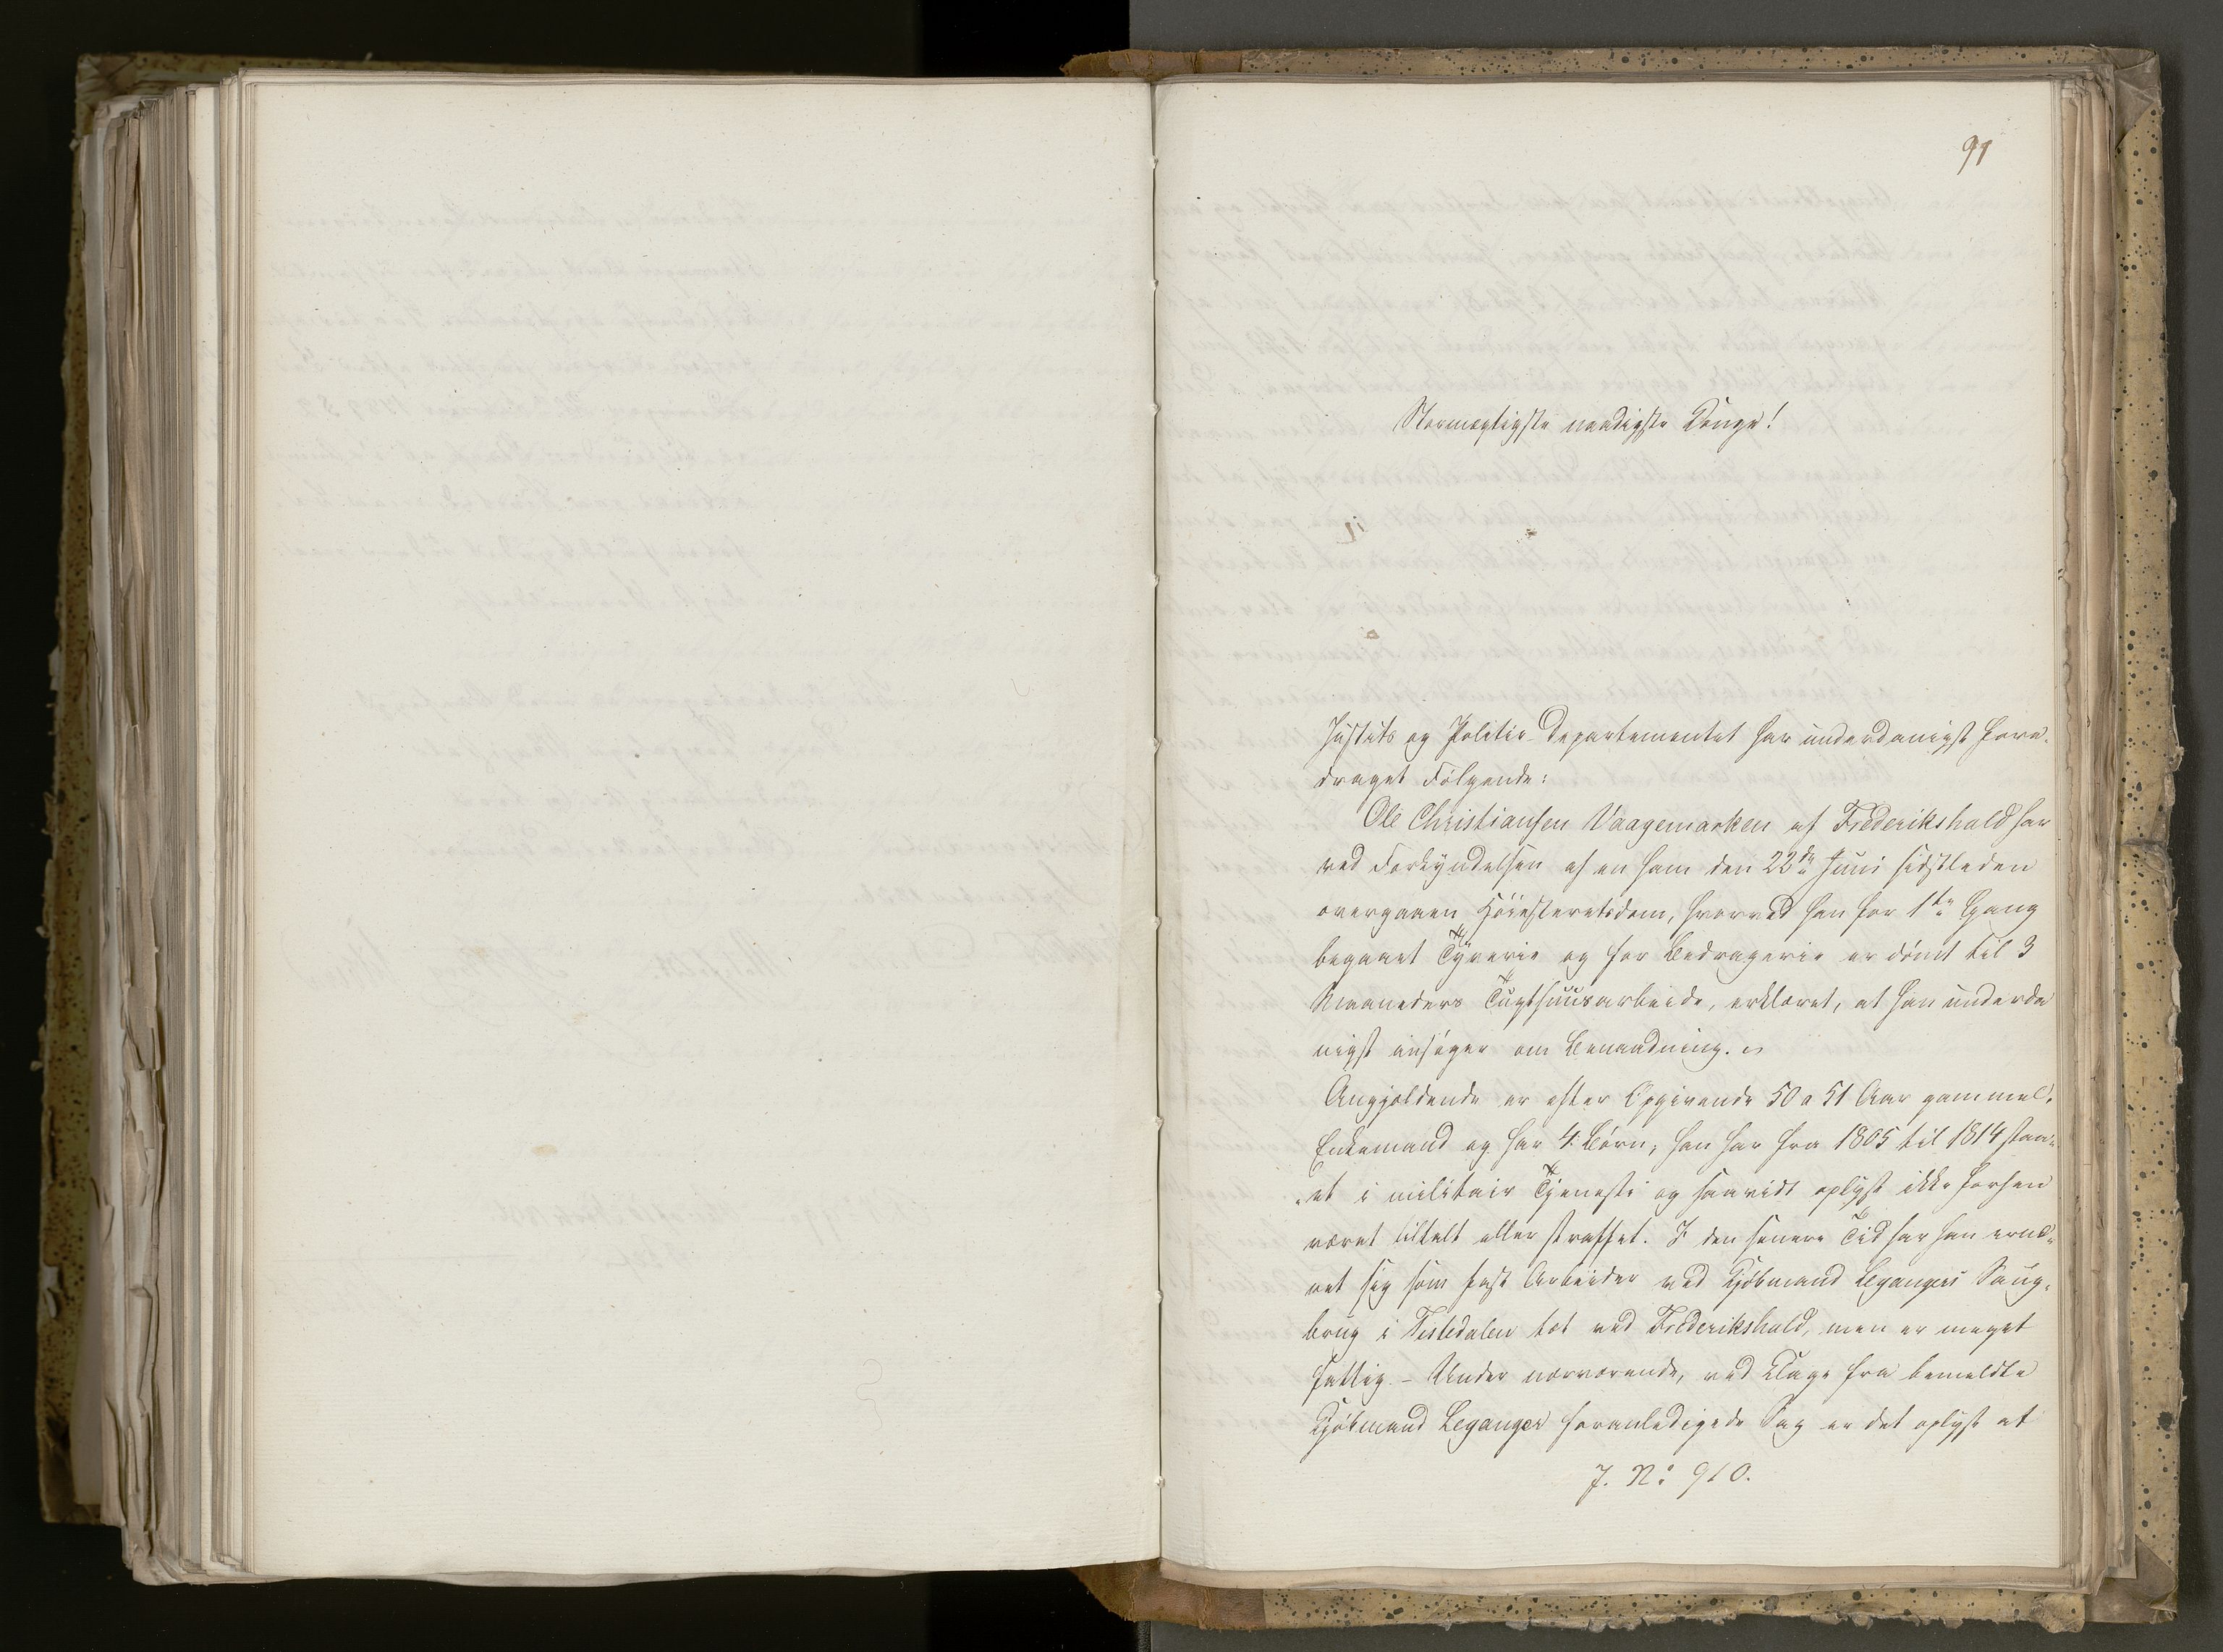 91
Stormægtigste naadigste Konge!
Justits og Politie Departementet har underdanigst fore-
draget Følgende:
Ole Christiansen Vaagemarken af Frederikshald har
ved Forkyndelsen af en ham den 22de Juni sidstleden
overgaaen Høiesteretsdom, hvorved han for 1ste Gang
begaaet Tyverie og for Bedragerie er dömt til 3
Maaneders Tugthuusarbeide, erklæret, at han underda
nigst ansøger om Benaadning.
Angjældende er efter Opgivende 50 a 51 Aar gammel,
Enkemand og har 4 Børn; han har fra 1805 til 1814 staa-
et i militair Tjeneste og saavidt oplyst ikke forhen
været tiltalt eller straffet. I den senere Tid har han ernæ-
ret sig som fast Arbeider ved Kjøbmand Legangers Saug-
brug i Tistedalen tæt ved Frederikshald, men er meget
fattig. - Under nærværende, ved Klage fra bemeldte
Kjøbmand Leganger foranledigede Sag er det oplyst at
J. No 910.